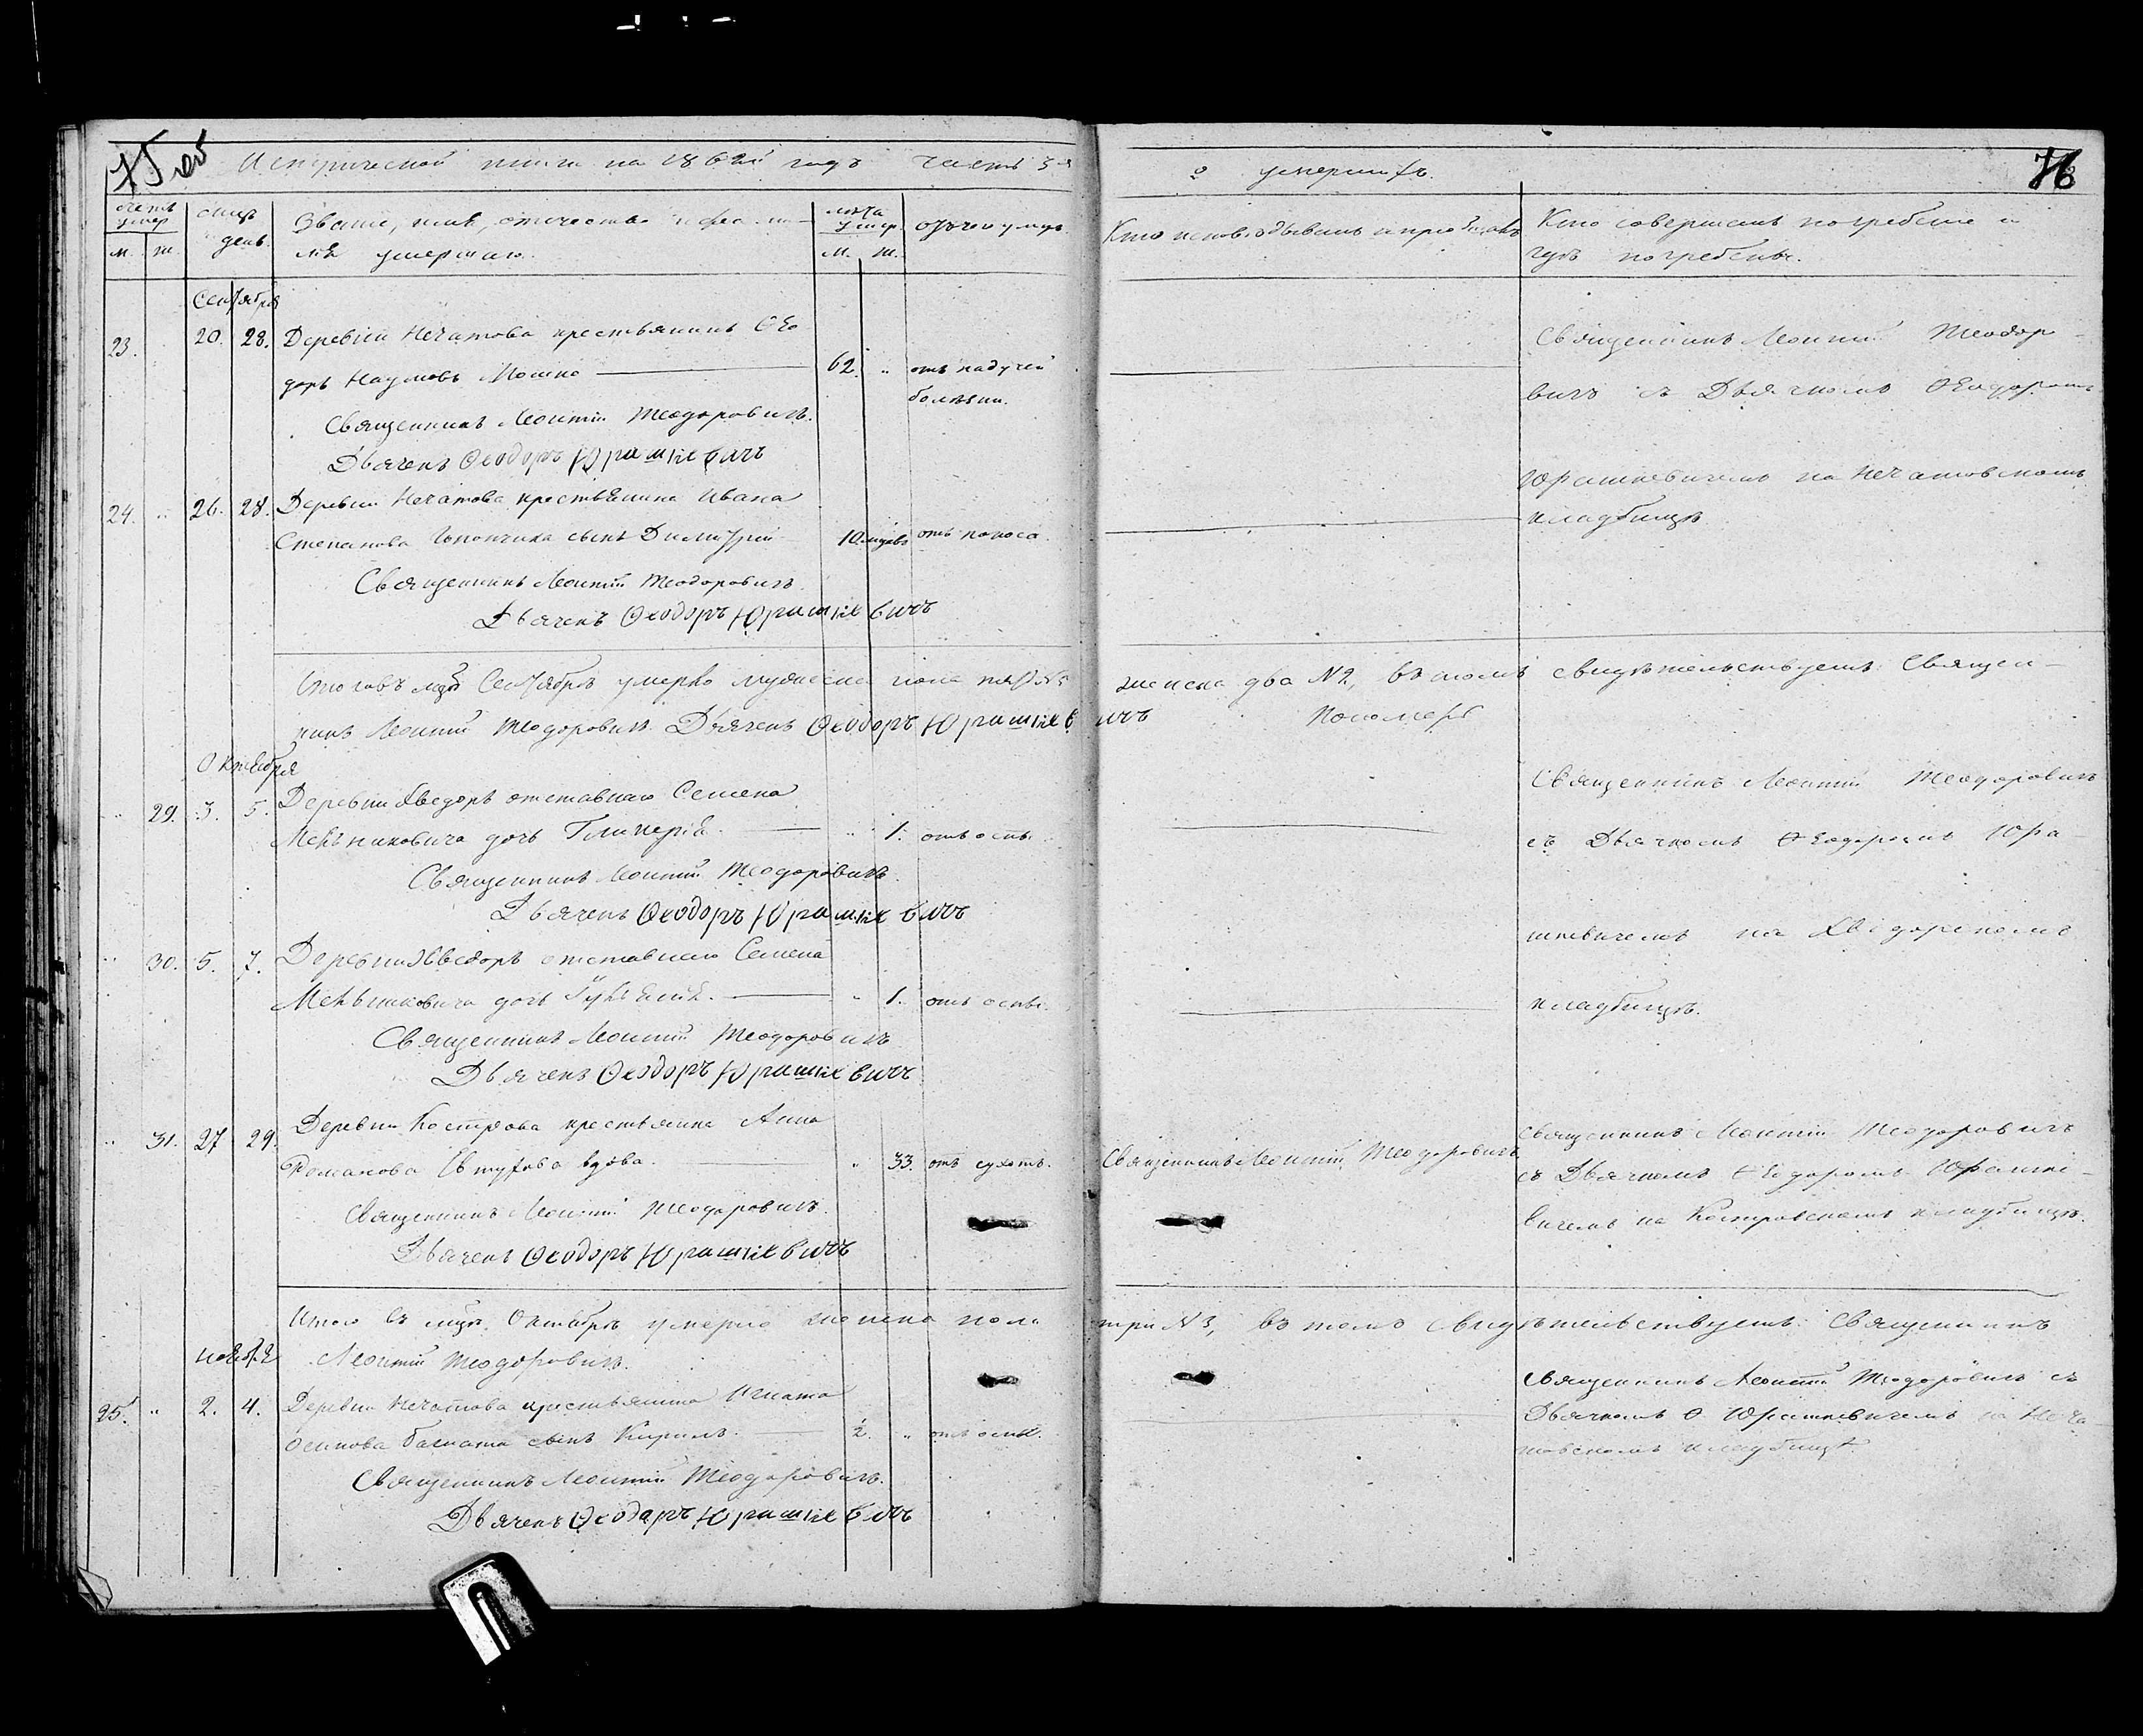 Метрической книги на 1862й годъ часть 3я
о умершихъ.
76
Счетъ умер.
М. Ж.
мцъ день.
Званіе, имя, отечество и фамилія умершаго.
лета умер.
М. Ж.
отъ чего умеръ
Кто исповѣдывалъ и пріобщалъ
Кто совершалъ погребеніе и
гдѣ погребены.
Сентября
23. 20. 28. Деревни Нечатова крестьянинъ Ѳео
доръ Наумовъ Мошко 62. „ отъ падучей
болѣзни.
Священникъ Леонтій Теодоровичъ.
Дьячекъ Ѳеодоръ Юрашкевичъ
Священникъ Леонтій Теодор-
вичъ съ Дьячкомъ Ѳеодоромъ
Юрашкевичемъ на Нечатовскомъ
кладбищѣ
24. „ 26. 28. Деревни Нечатова крестьянина Ивана
Степанова сынъ Димитрій 10 мцовъ отъ поноса.
Священникъ Леонтій Теодоровичъ.
Дьячекъ Ѳеодоръ Юрашкевичъ
Сентябрѣ умерло мужеска пола
женска два №2, въ томъ свидѣтельствуетъ: Священ-
никъ Леонтій Теодоровичъ. Дьячекъ Ѳеодоръ Юрашкевичъ
Пономарь
Октября
„ 29. 3. 5. Деревни Хведоръ отставнаго Семена
дочь Гликерія. „ 1. отъ оспы.
Священникъ Леонтій Теодоровичъ.
Дьячекъ Ѳеодоръ Юрашкевичъ
Священникъ Леонтій Теодоровичъ
съ Дьячкомъ Ѳеодоромъ Юра-
шкевичемъ на Хведорскомъ
кладбищѣ.
„ 30. 5. 7. Деревни Хведоръ отставнаго Семена
дочь „ 1. отъ оспы.
Священникъ Леонтій Теодоровичъ
Дьячекъ Ѳеодоръ Юрашкевичъ
„ 31. 27 29. Деревни Кострова крестьянка Анна
Романова вдова. „ 33. отъ сухотъ.
Священникъ Леонтій Теодоровичъ.
Дьячекъ Ѳеодоръ Юрашкевичъ
Священникъ Леонтій Теодоровичъ
Священникъ Леонтій Теодоровичъ
съ Дьячкомъ Ѳеодоромъ Юрашке-
вичемъ на Костровскомъ кладбищѣ.
Итого въ мцѣ Октябрѣ умерло женска пола
три №3, въ томъ свидѣтельствуетъ: Священникъ
Леонтій Теодоровичъ.
ноября
25. „ 2. 4. Деревни Нечатова крестьянина Игната
Осипова сынъ Кирилъ. 2. „ отъ оспы.
Священникъ Леонтій Теодоровичъ.
Дьячекъ Ѳеодоръ Юрашкевичъ
Священникъ Леонтій Теодоровичъ съ
Дьячкомъ Ѳ Юрашкевичемъ на Неча
товскомъ кладбищѣ.